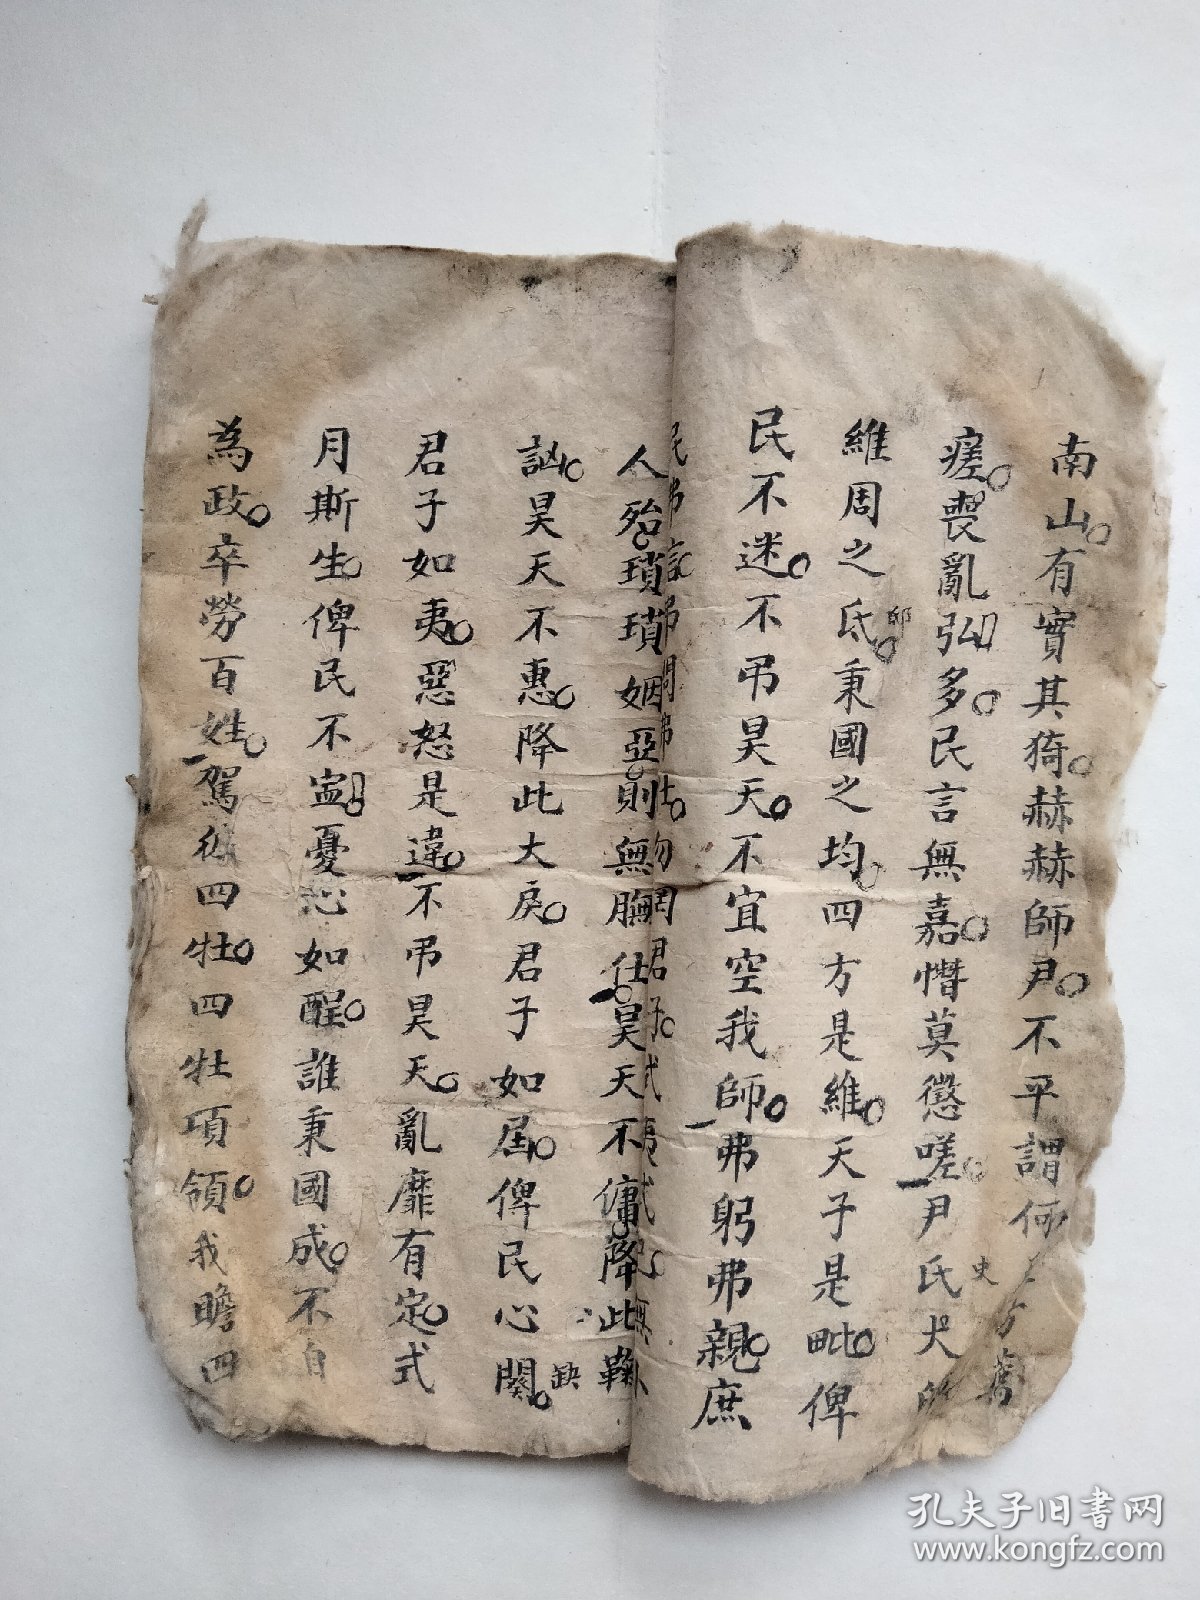 南山有實其猗赫赫師尹不平謂何
方薦
瘥喪亂弘多民言無嘉憯莫懲嗟尹氏大師
史
維周之氐秉國之均四方是維天子是毗俾
邸
民不迷不吊昊天不宜空我師弗躬弗親庶
民弗信弗問弗仕勿罔君子式夷式已無小
人殆瑣瑣姻亞則無膴仕昊天不傭降此鞠
訩昊天不惠降此大戾君子如屆俾民心闋
缺
君子如夷惡怒是違不吊昊天亂靡有定式
月斯生俾民不寍憂心如酲誰秉國成不自
為政卒勞百姓駕彼四牡四牡項領我瞻四
孔夫子旧书网
www.kongfz.com